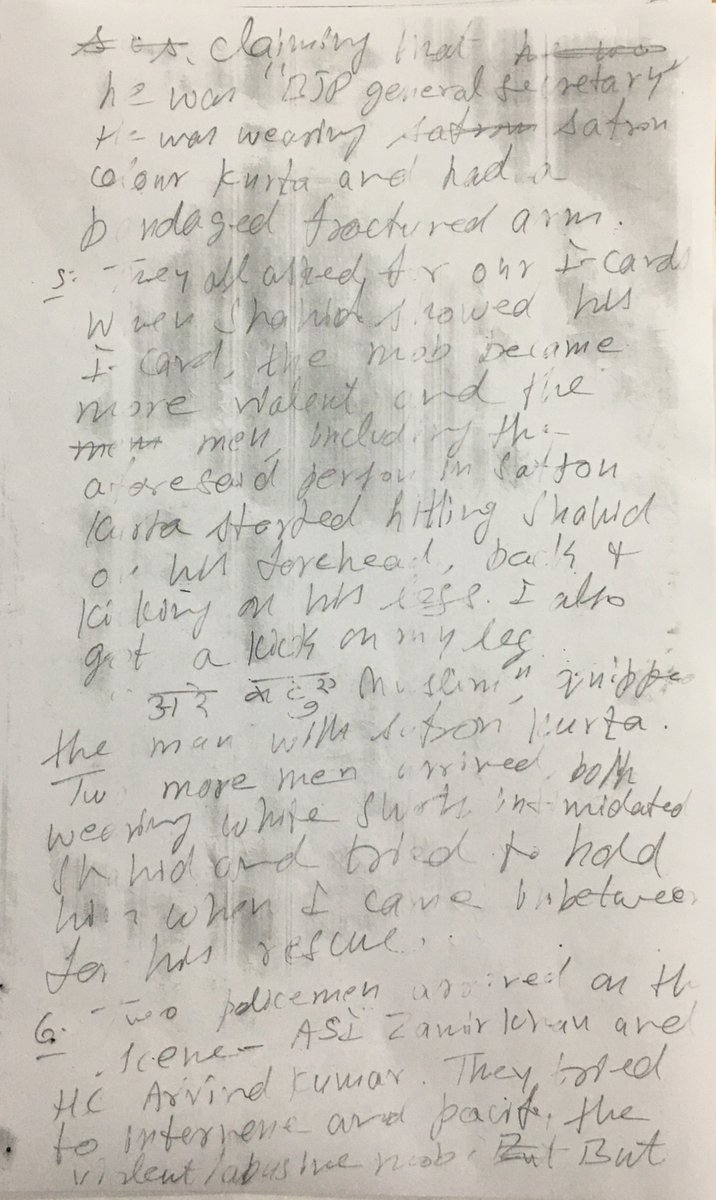 claiming that
he was "BJP general secretary"
He was wearing satron satron
colour kurta and had a
bandaged fractured arm.
5. They all asked for our I-cards
When Shahid showed his
I-card, the mob became
more violent and the
men, including the
aforesaid person in satron
kurta started hitting Shahid
on his forehead, back &
kicking on his legs. I also
got a kick on my leg
अरे Muslim", quipped
the man with satron kurta.
Two more men arrived, both
wearing white shirts intimidated
Shahid and tried to hold
him when I came inbetween
for his rescue.
6. Two policemen arrived on the
scene - ASI Zamir Khan and
HC Arvind Kumar. They tried
to intervene and pacify the
violent/abusive mob. But But